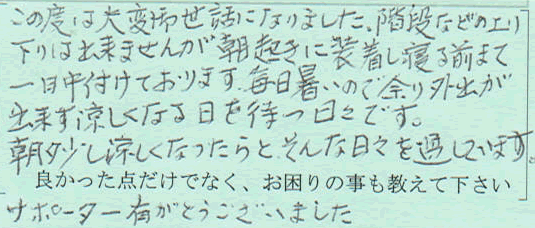 この度は大変御世話になりました、階段などの上り
下りは出来ませんが朝起きに装着し寝る前まで
一日中付けております。毎日暑いので余り外出が
出来ず涼しくなる日を待つ日々です。
朝夕少し涼しくなったらと、そんな日々を過しています。
良かった点だけでなく、お困りの事も教えて下さい
サポーター有がとうございました